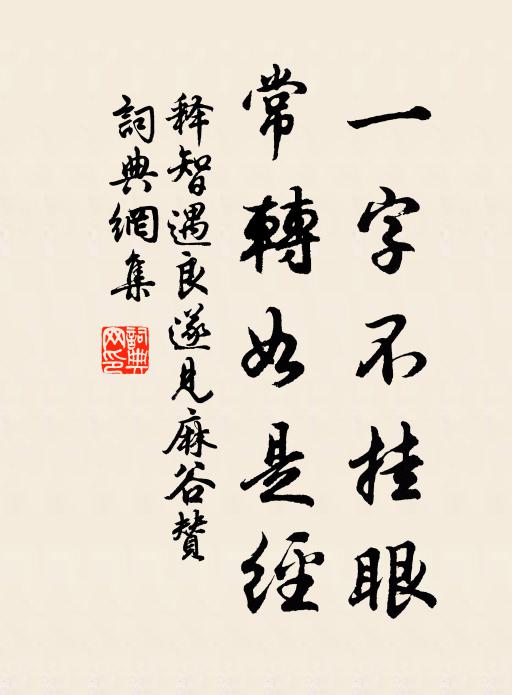 一字不挂眼
常轉如是經
释智遇良遂見麻谷贊
詞典網集
詞典网印